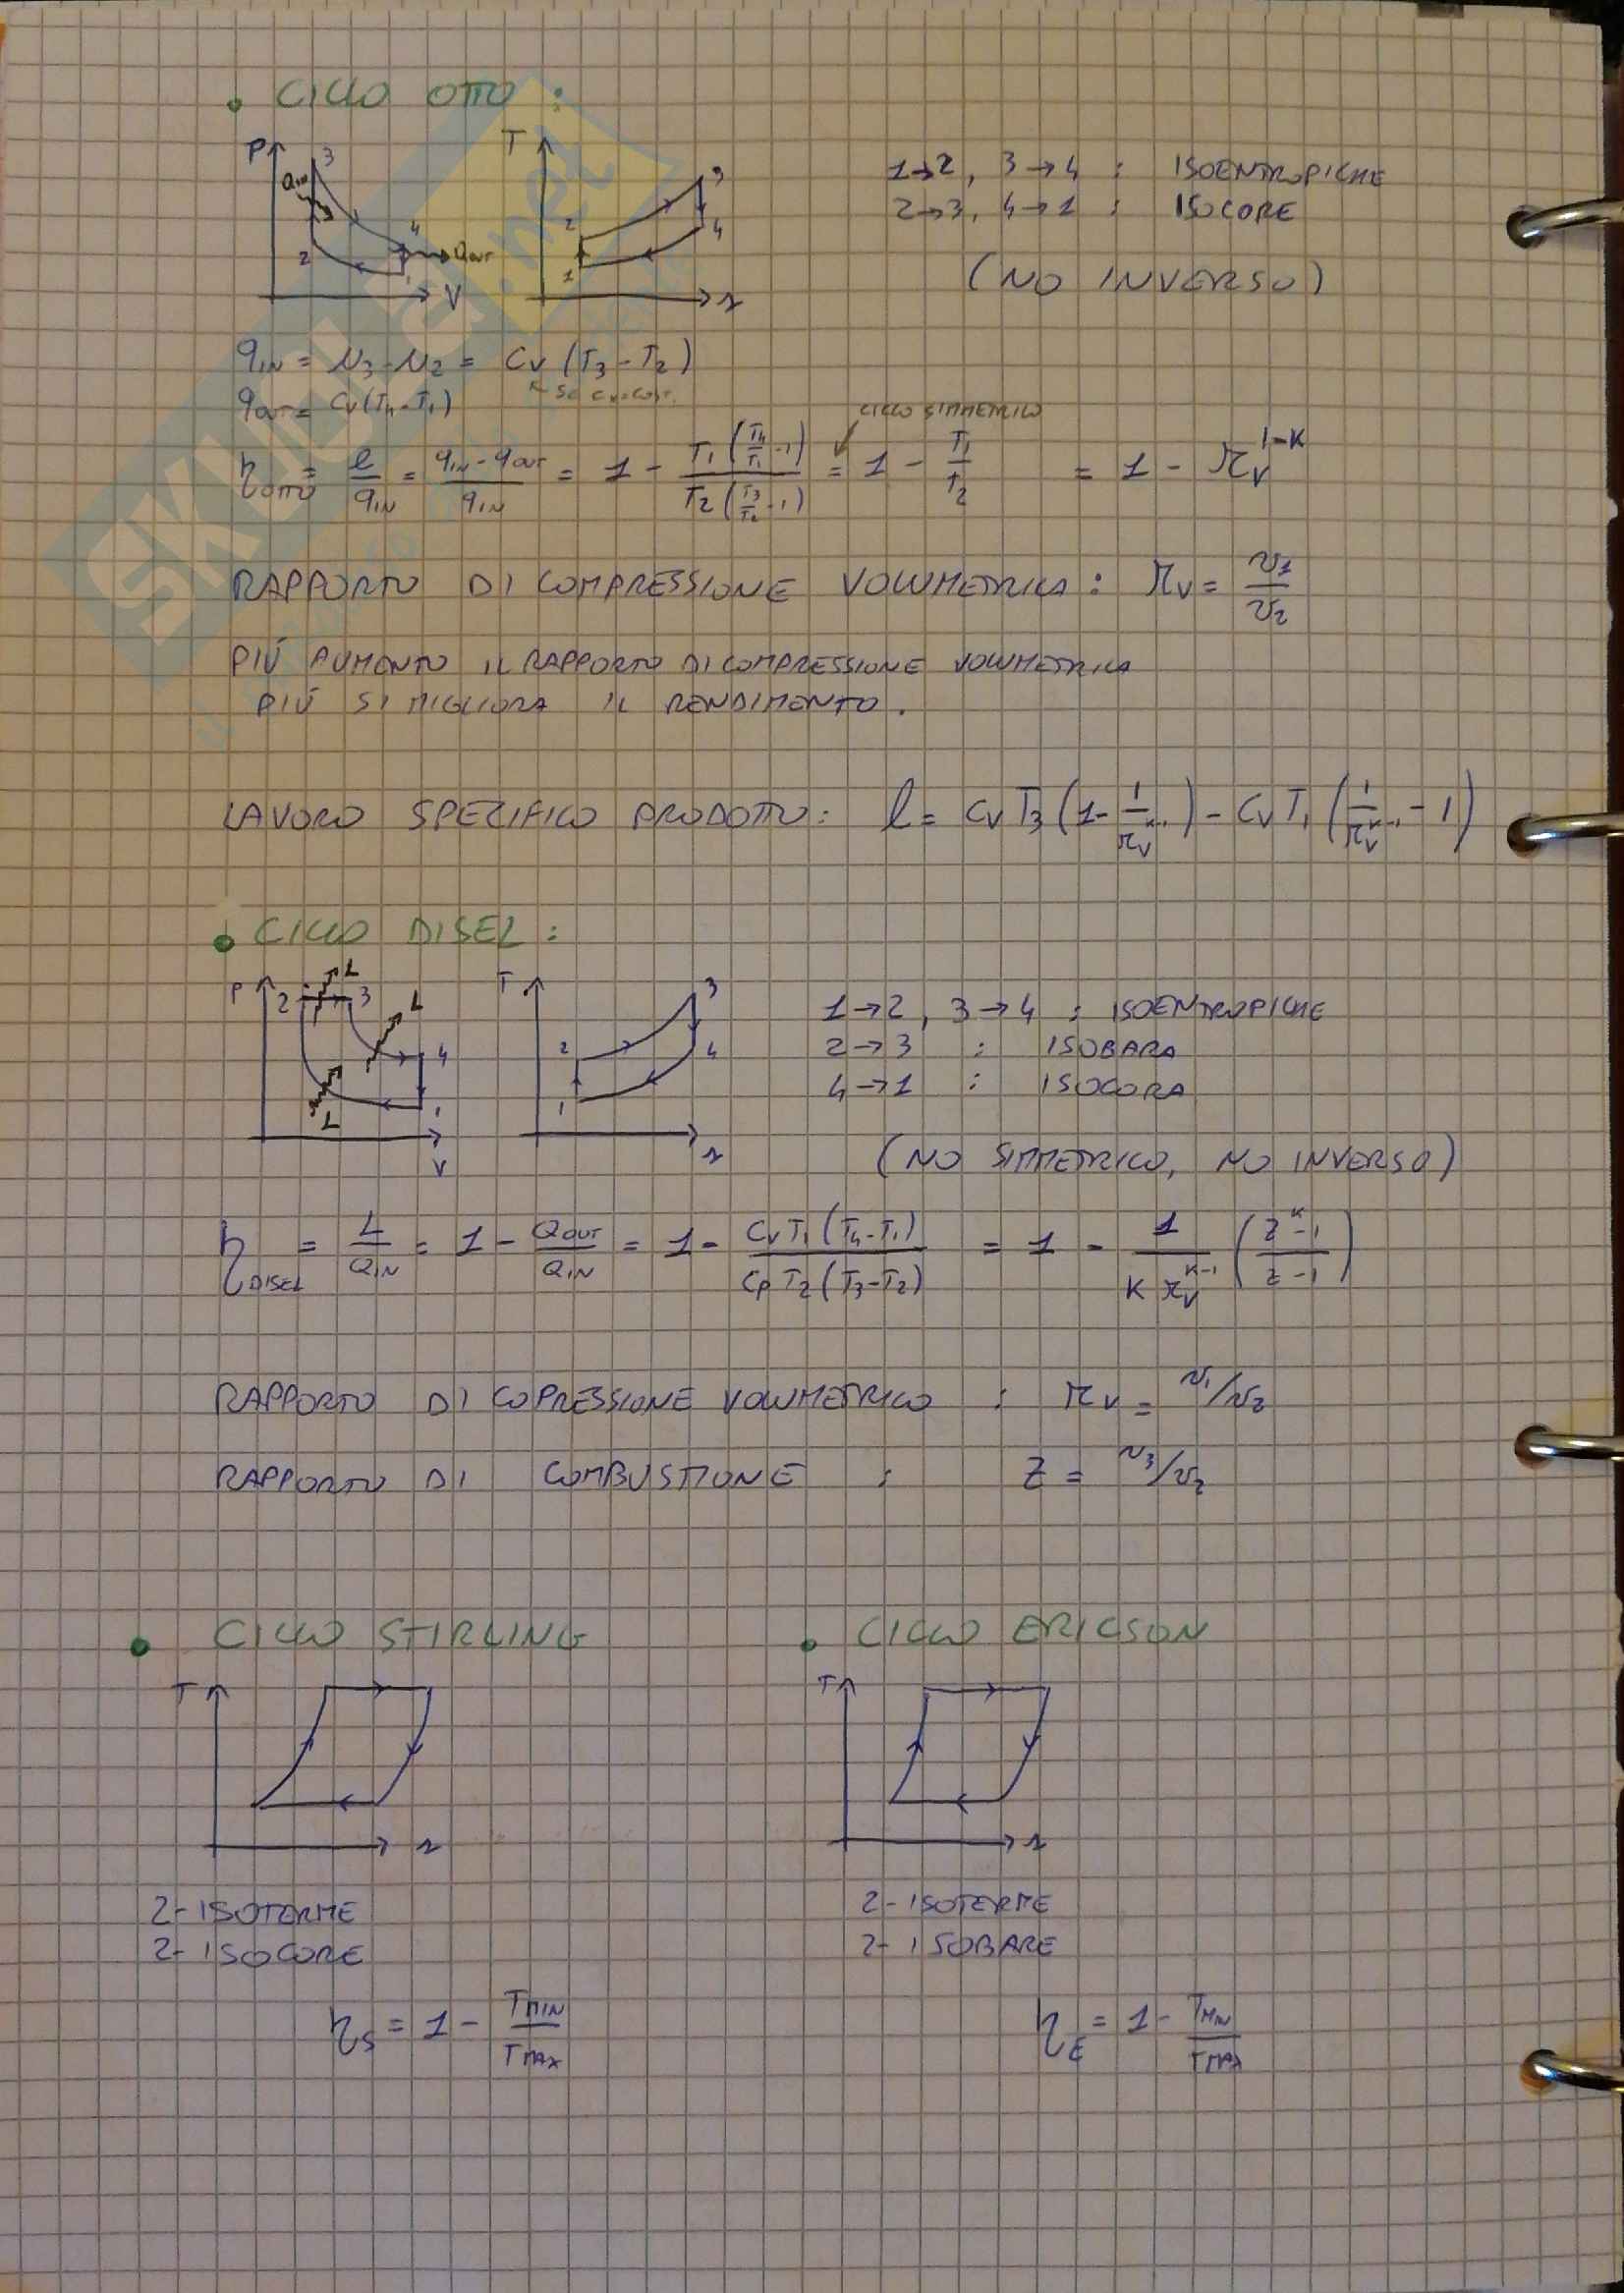 • CICLO OTTO :
P 3 Qin 2 4 Qout 1 V
T 3 2 4 1 s
1→2, 3→4 : ISOENTROPICHE
2→3, 4→1 : ISOCORE
(NO INVERSO)
qIN = u3 - u2 = Cv (T3 - T2)
↖ SE Cv=COST.
qOUT = Cv(T4 - T1)
CICLO SIMMETRICO
ηOTTO = l/qIN = (qIN - qOUT)/qIN = 1 - T1(T4/T1 - 1) / T2(T3/T2 - 1) = 1 - T1/T2 = 1 - rv^(1-K)
RAPPORTO DI COMPRESSIONE VOLUMETRICA : rv = v1/v2
PIÚ AUMENTO IL RAPPORTO DI COMPRESSIONE VOLUMETRICA
PIÚ SI MIGLIORA IL RENDIMENTO.
LAVORO SPECIFICO PRODOTTO: l = CvT3(1 - 1/rv^(K-1)) - CvT1(1/rv^(K-1) - 1)
• CICLO DISEL :
P 2 L 3 L 4 L 1 V
T 3 2 4 1 s
1→2, 3→4 : ISOENTROPICHE
2→3 : ISOBARA
4→1 : ISOCORA
(NO SIMMETRICO, NO INVERSO)
ηDISEL = L/QIN = 1 - QOUT/QIN = 1 - CvT1(T4-T1) / CpT2(T3-T2) = 1 - 1/(K rv^(K-1)) ((z^K - 1)/(z - 1))
RAPPORTO DI COPRESSIONE VOLUMETRICO : rv = v1/v2
RAPPORTO DI COMBUSTIONE : z = v3/v2
• CICLO STIRLING
T s
2- ISOTERME
2- ISOCORE
ηS = 1 - TMIN/TMAX
• CICLO ERICSON
T s
2- ISOTERME
2- ISOBARE
ηE = 1 - TMIN/TMAX